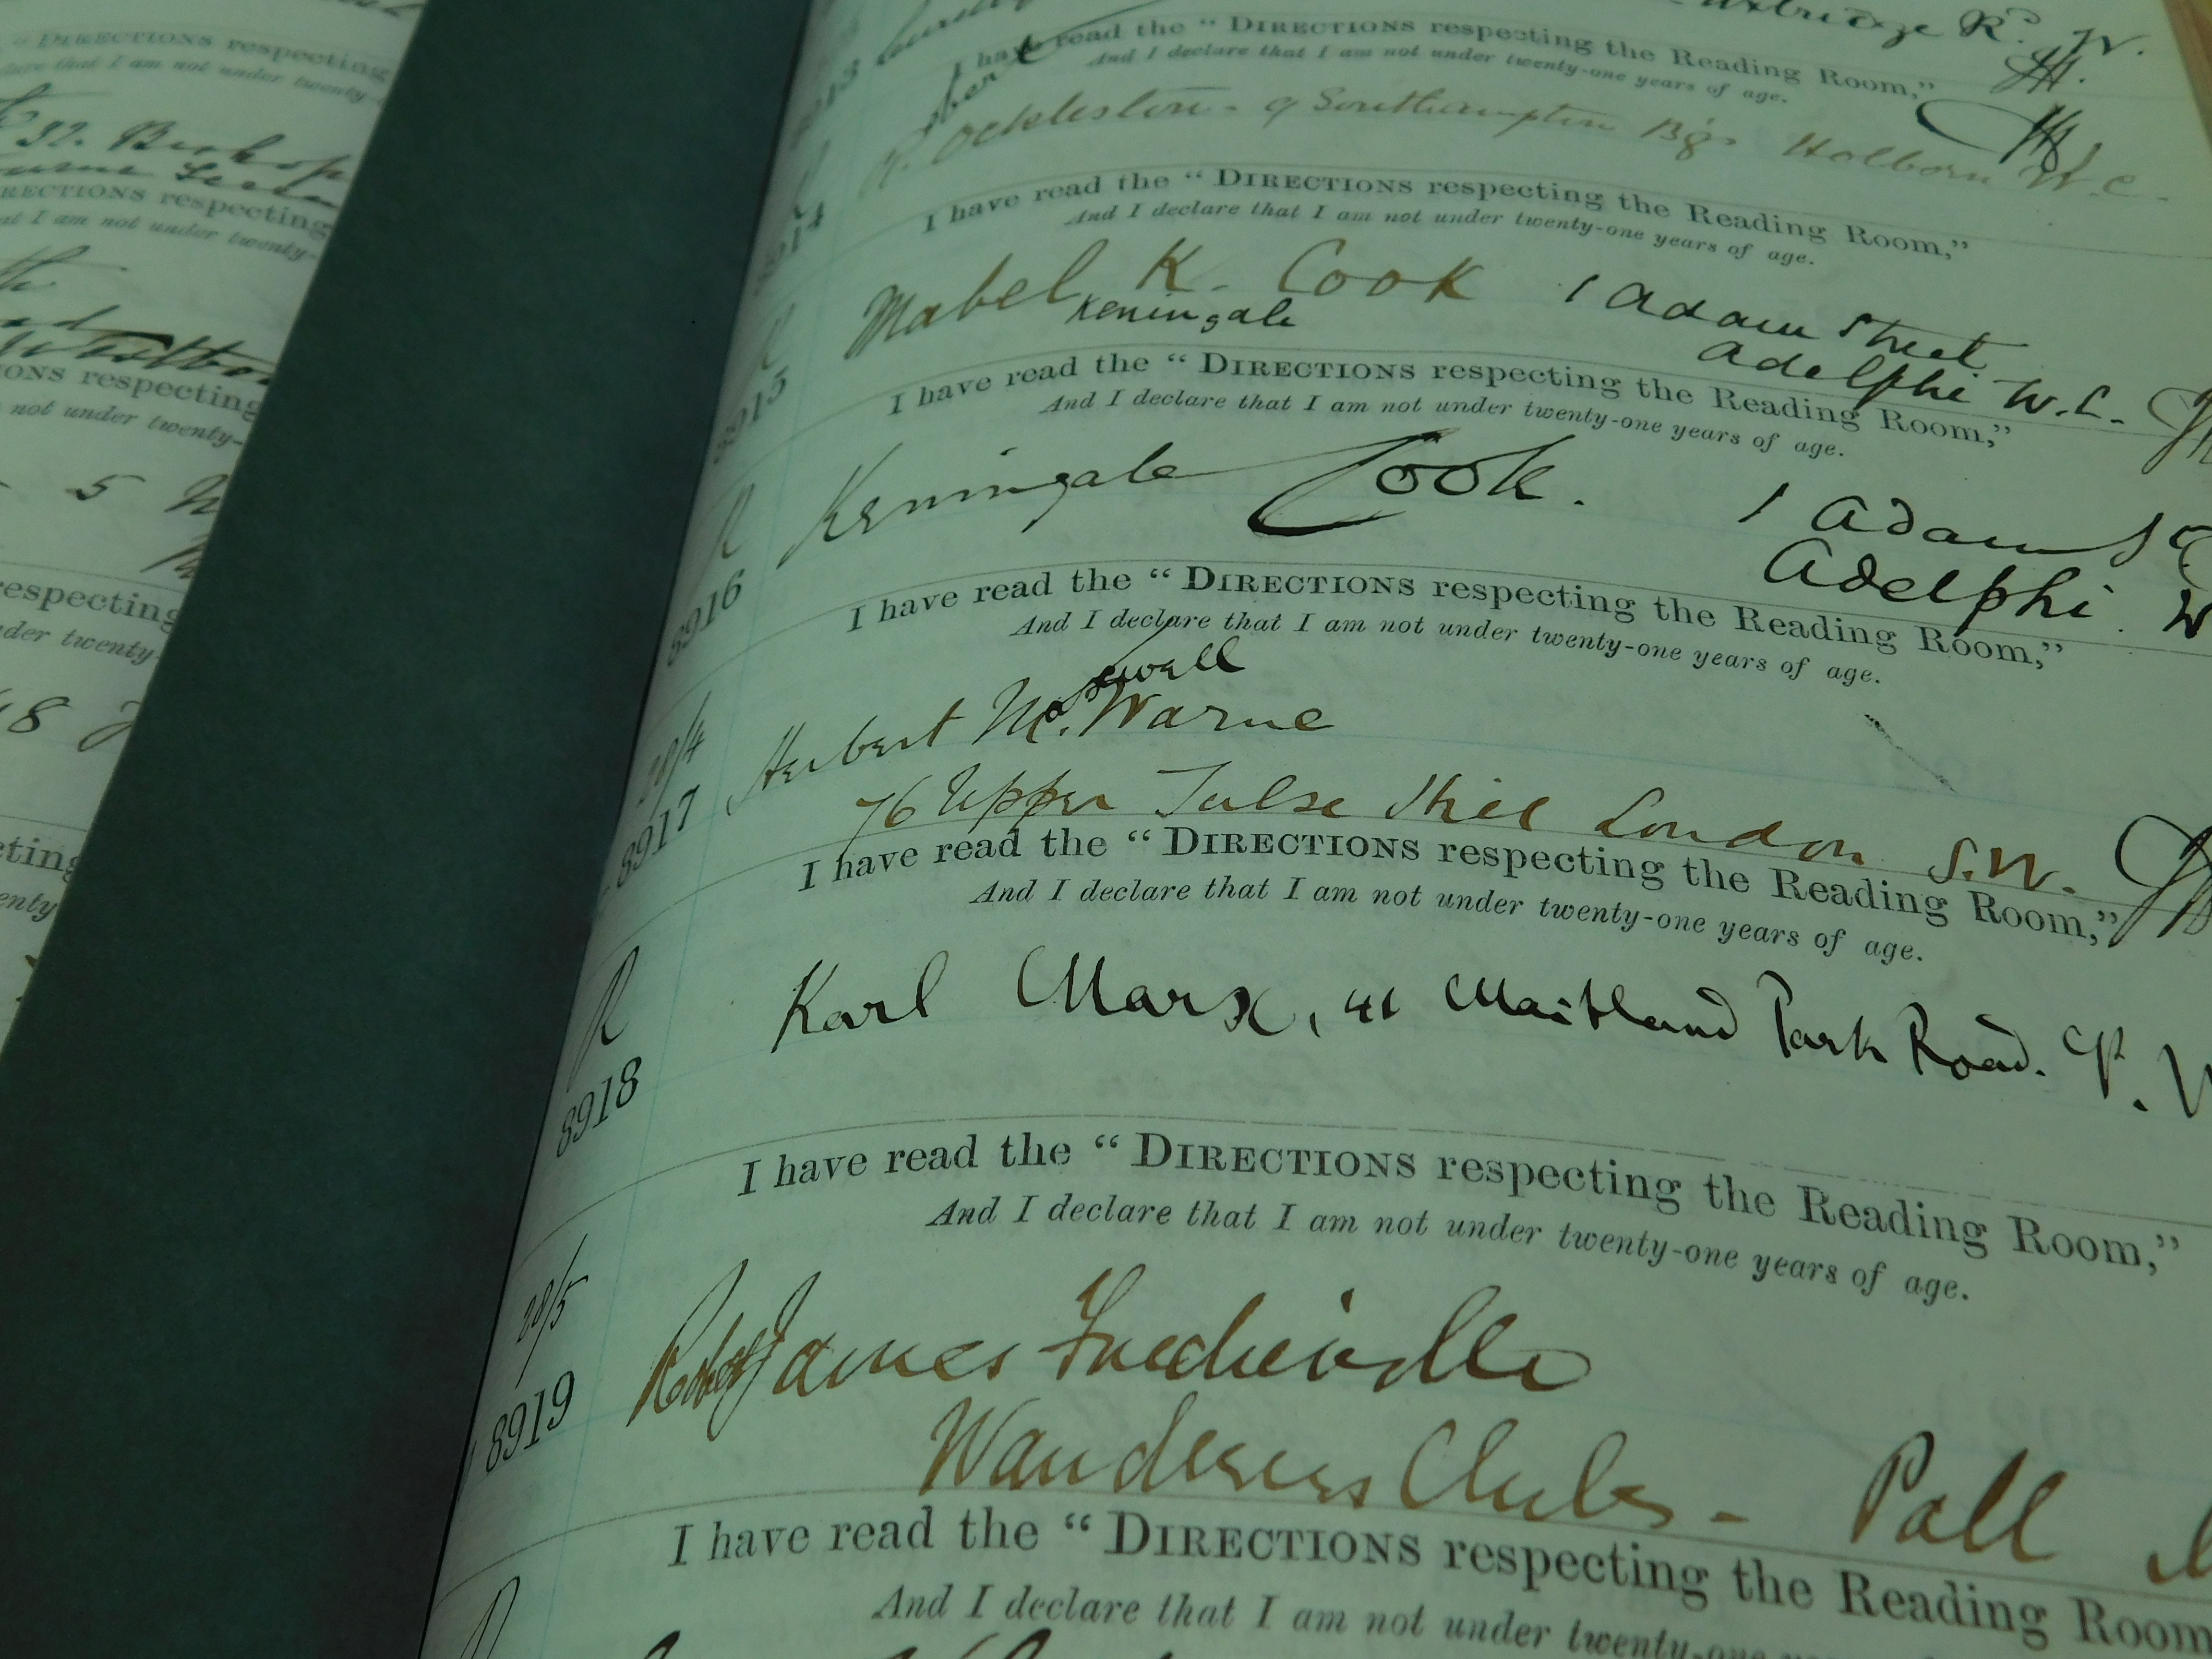 "DIRECTIONS respecting
that I am not under twenty-
32. Bishop
RECTIONS respecting
that I am not under twenty-
IONS respecting
not under twenty-
5
respecting
under twenty-
48
R.d W.
I have read the "DIRECTIONS respecting the Reading Room,"
And I declare that I am not under twenty-one years of age.
Southampton Bgs Holborn W.C.
8914
I have read the "DIRECTIONS respecting the Reading Room,"
And I declare that I am not under twenty-one years of age.
Mabel K. Cook 1 Adam Street
Keningale
Adelphi W.C.
8915
I have read the "DIRECTIONS respecting the Reading Room,"
And I declare that I am not under twenty-one years of age.
R
Keningale Cook. 1 Adam St
Adelphi. W
8916
I have read the "DIRECTIONS respecting the Reading Room,"
And I declare that I am not under twenty-one years of age.
Sewell
28/4
Herbert Mo. Warne
76 Upper Tulse Hill London S.W.
8917
I have read the "DIRECTIONS respecting the Reading Room,"
And I declare that I am not under twenty-one years of age.
R
Karl Marx, 41 Maitland Park Road. N. W
8918
I have read the "DIRECTIONS respecting the Reading Room,"
And I declare that I am not under twenty-one years of age.
28/5
Robert James
Wanderers Club - Pall
8919
I have read the "DIRECTIONS respecting the Reading Room
And I declare that I am not under twenty-one